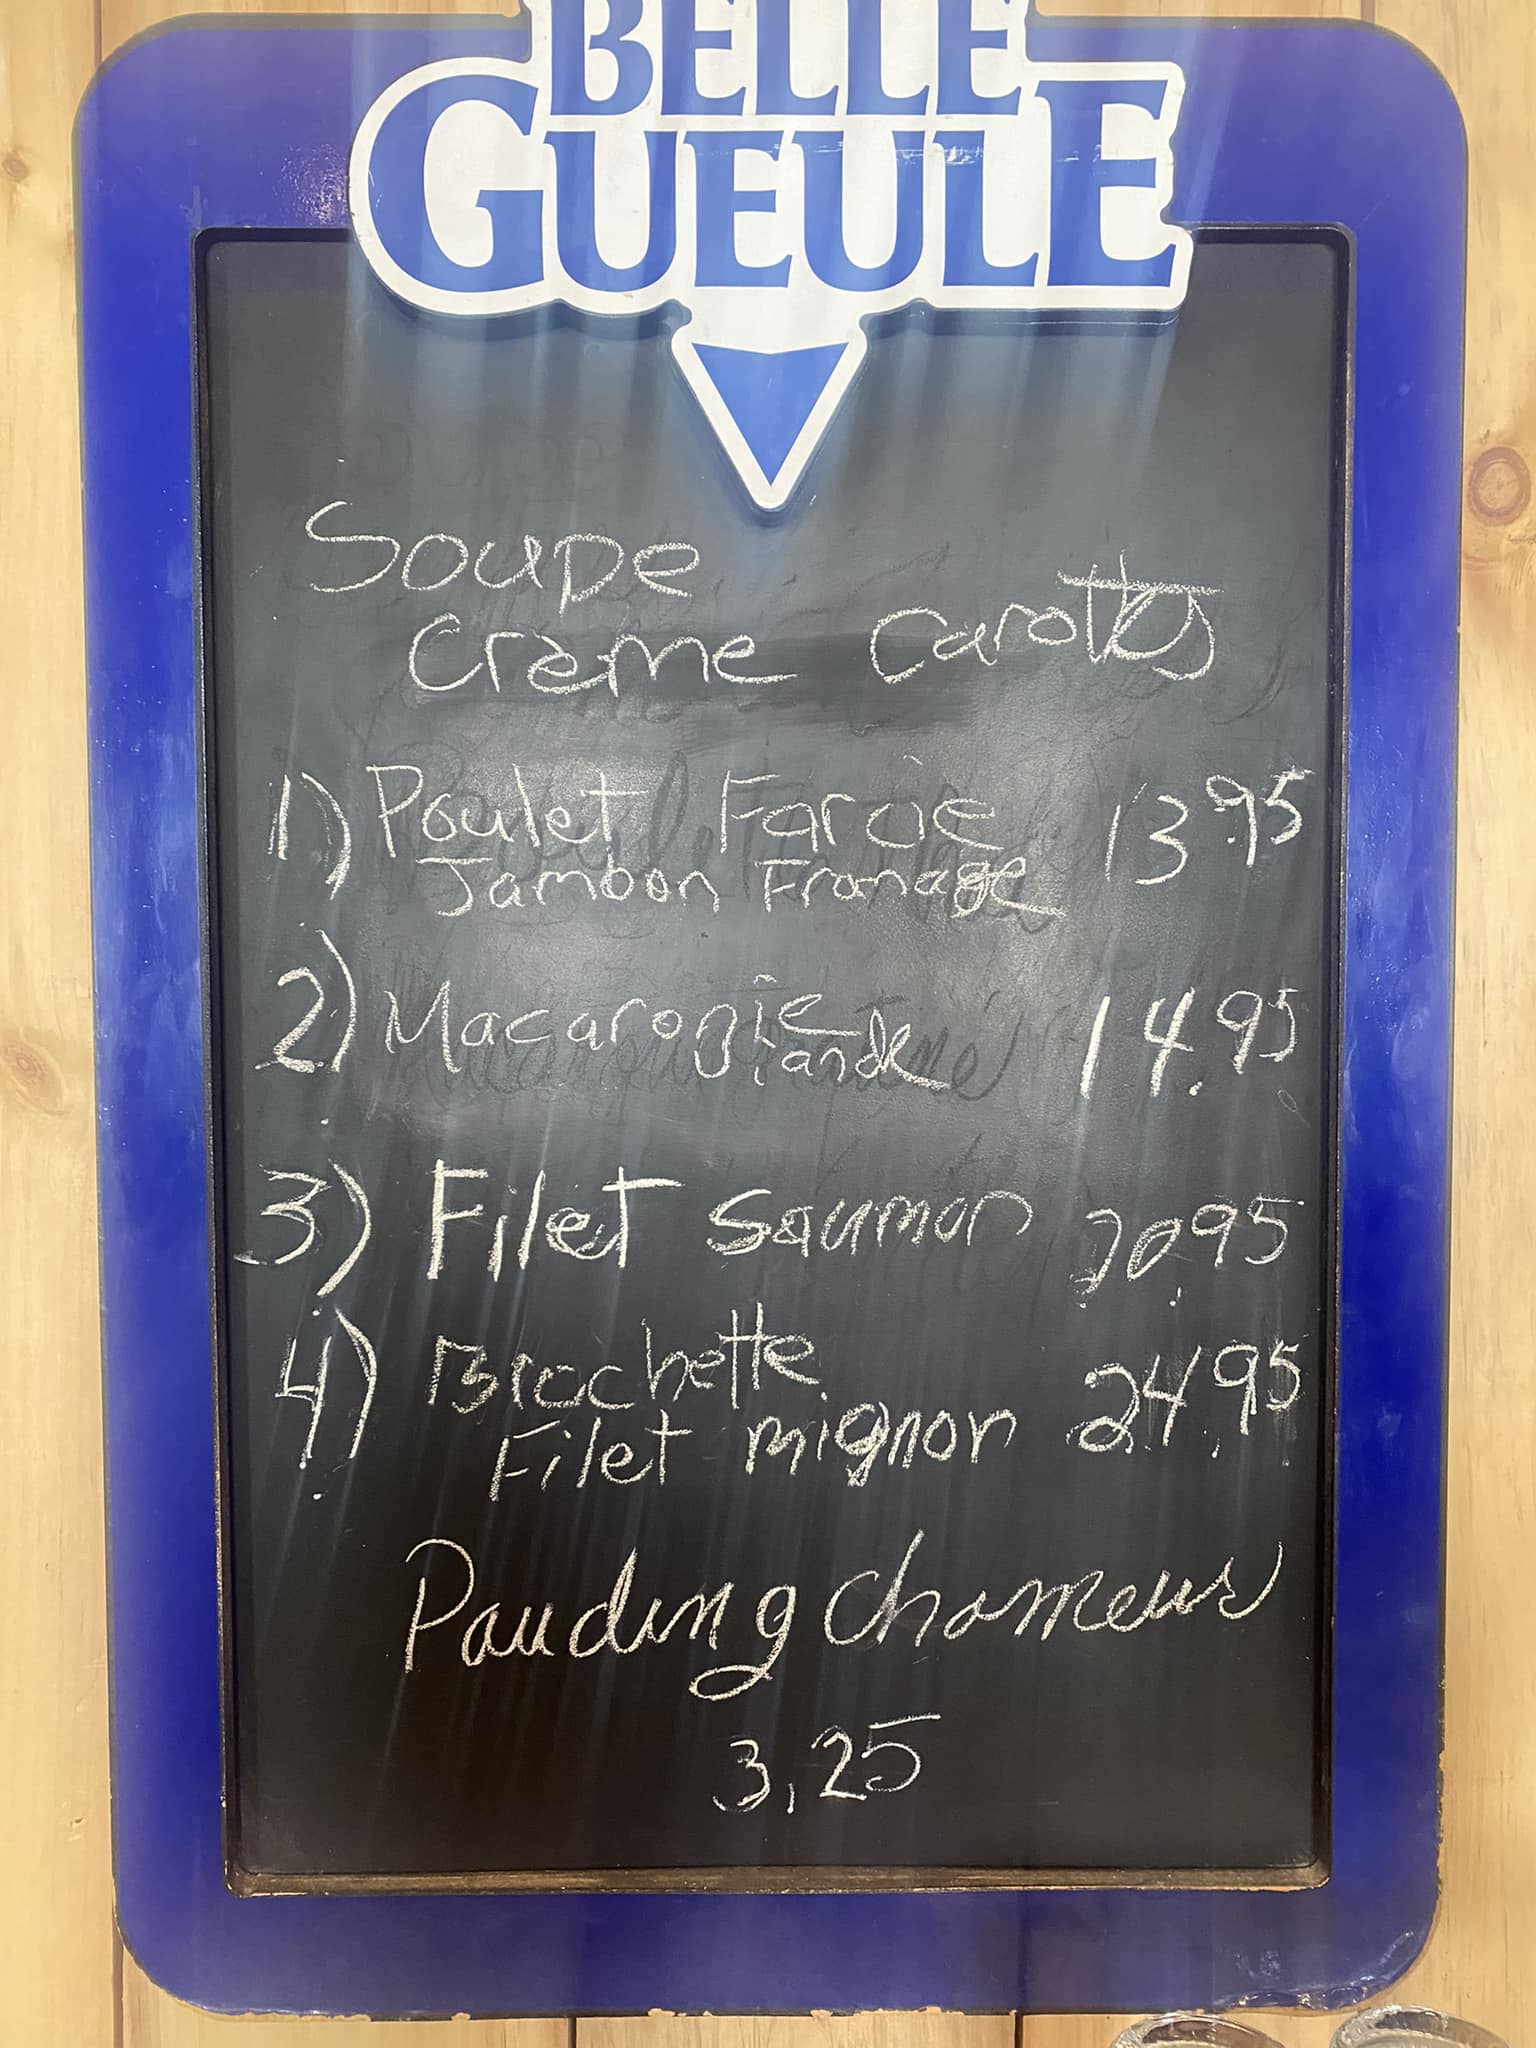 BELLE
GUEULE
Soupe
Crème Carottes
1) Poulet Farcie 13.95
Jambon Fromage
2) Macaronie 14.95
Viande
3) Filet Saumon 20.95
4) Brochette 24.95
Filet mignon
Pauding chomeur
3,25